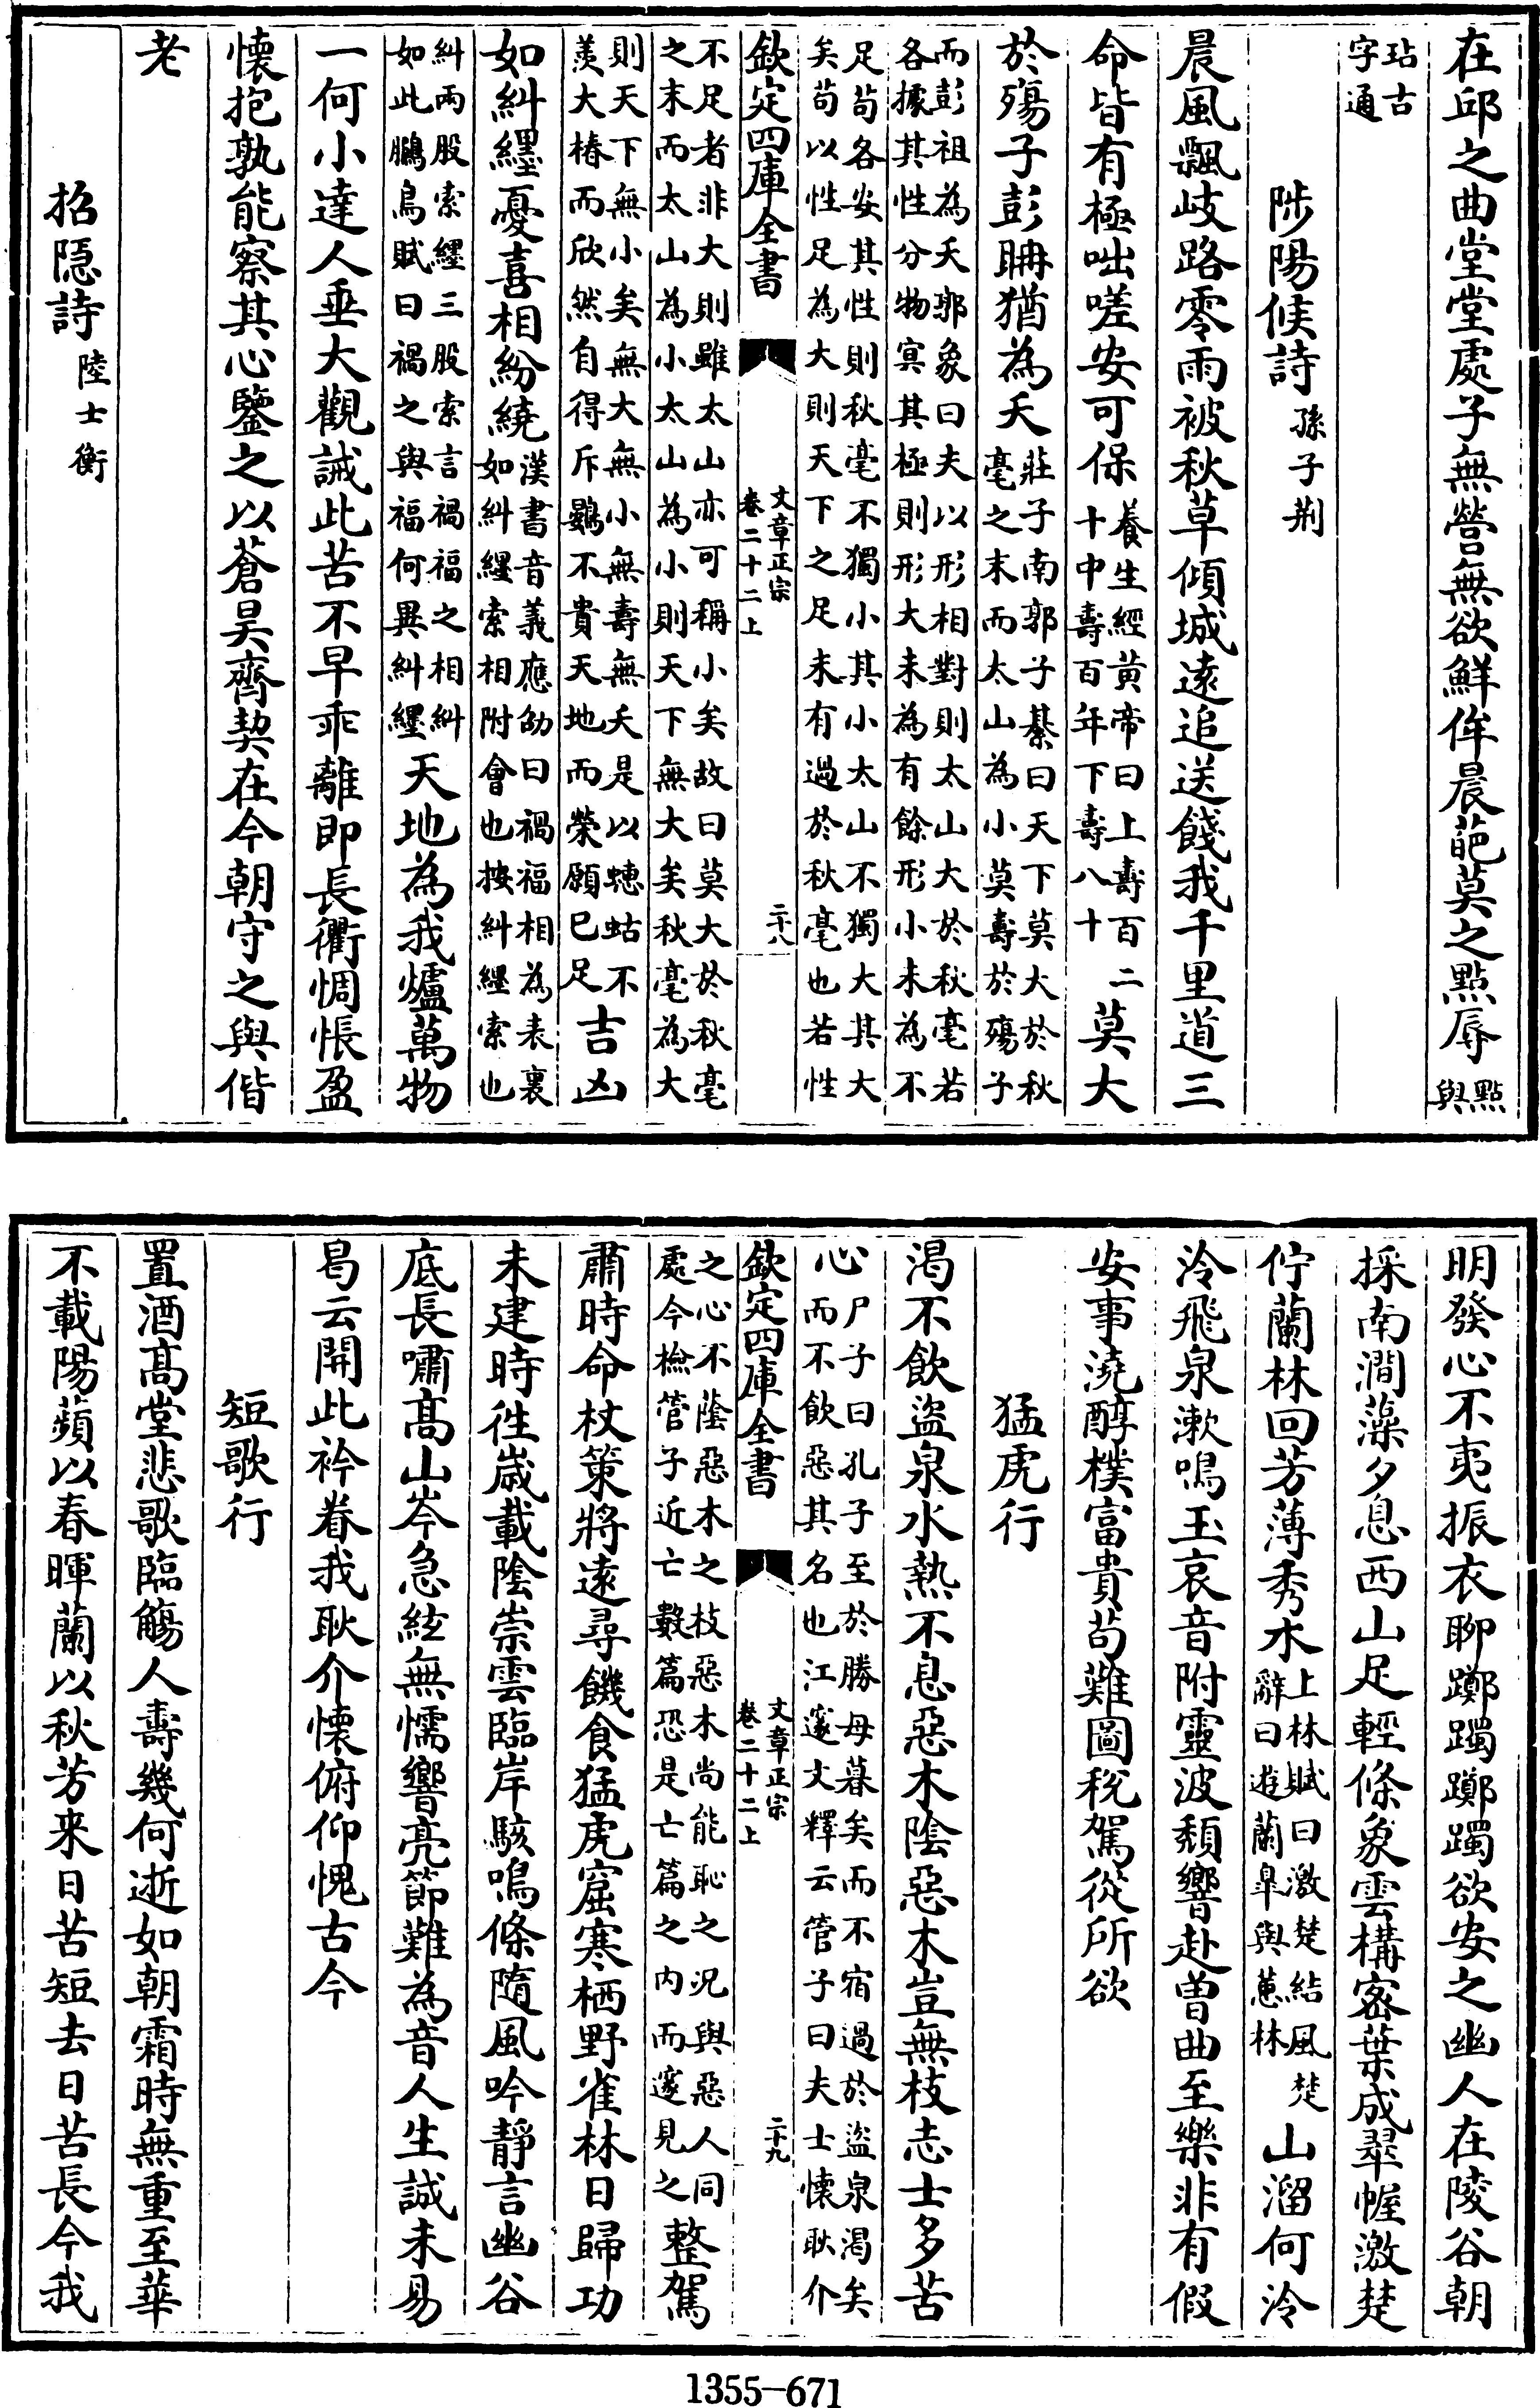 在邱之曲堂堂處子無營無欲鮮侔晨葩莫之點辱點與
玷古字通
陟陽候詩孫子荆
晨風飄岐路零雨被秋草傾城遠追送餞我千里道三
命皆有極咄嗟安可保養生經黄帝曰上壽百二十中壽百年下壽八十莫大
於殤子彭聃猶為夭莊子南郭子綦曰天下莫大於秋毫之末而太山為小莫壽於殤子
而彭祖為夭郭象曰夫以形相對則太山大於秋毫若各據其性分物㝠其極則形大未為有餘形小未為不
足苟各安其性則秋毫不獨小其小太山不獨大其大矣苟以性足為大則天下之足未有過於秋毫也若性
欽定四庫全書 文章正宗 卷二十二上 二十八
不足者非大則雖太山亦可稱小矣故曰莫大於秋毫之末而太山為小太山為小則天下無大矣秋毫為大
則天下無小矣無大無小無壽無夭是以蟪蛄不羨大椿而欣然自得斥鷃不貴天地而榮願已足吉凶
如糾纆憂喜相紛繞漢書音義應劭曰禍福相為表裏如糾纆索相附會也按糾纆索也
糾兩股索纆三股索言禍福之相糾如此鵩鳥賦曰禍之與福何異糾纆天地為我爐萬物
一何小達人垂大觀誡此苦不早乖離即長衢惆悵盈
懐抱孰能察其心鑒之以蒼昊齊契在今朝守之與偕
老
招隠詩陸士衡
明發心不夷振衣聊躑躅躑躅欲安之幽人在陵谷朝
採南澗藻夕息西山足輕條象雲構宻葉成翠幄激楚
佇蘭林回芳薄秀木上林賦曰激楚結風楚辭曰遊蘭臯與蕙林山溜何泠
泠飛泉漱鳴玉哀音附靈波頽響赴曽曲至樂非有假
安事澆醇樸富貴苟難圖稅駕從所欲
猛虎行
渴不飲盜泉水熱不息惡木陰惡木豈無枝志士多苦
心尸子曰孔子至於勝母暮矣而不宿過於盜泉渴矣而不飲惡其名也江邃文釋云管子曰夫士懐耿介
欽定四庫全書 文章正宗 卷二十二上 二十九
之心不蔭惡木之枝惡木尚能恥之況與惡人同處今檢管子近亡數篇恐是亡篇之内而邃見之整駕
肅時命杖策將逺尋饑食猛虎窟寒栖野雀林日歸功
未建時徃嵗載陰崇雲臨岸駭鳴條隨風吟靜言幽谷
底長嘯髙山岑急絃無懦響亮節難為音人生誠未易
曷云開此衿眷我耿介懐俯仰愧古今
短歌行
置酒髙堂悲歌臨觴人壽幾何逝如朝霜時無重至華
不載陽蘋以春暉蘭以秋芳来日苦短去日苦長今我
1355-671